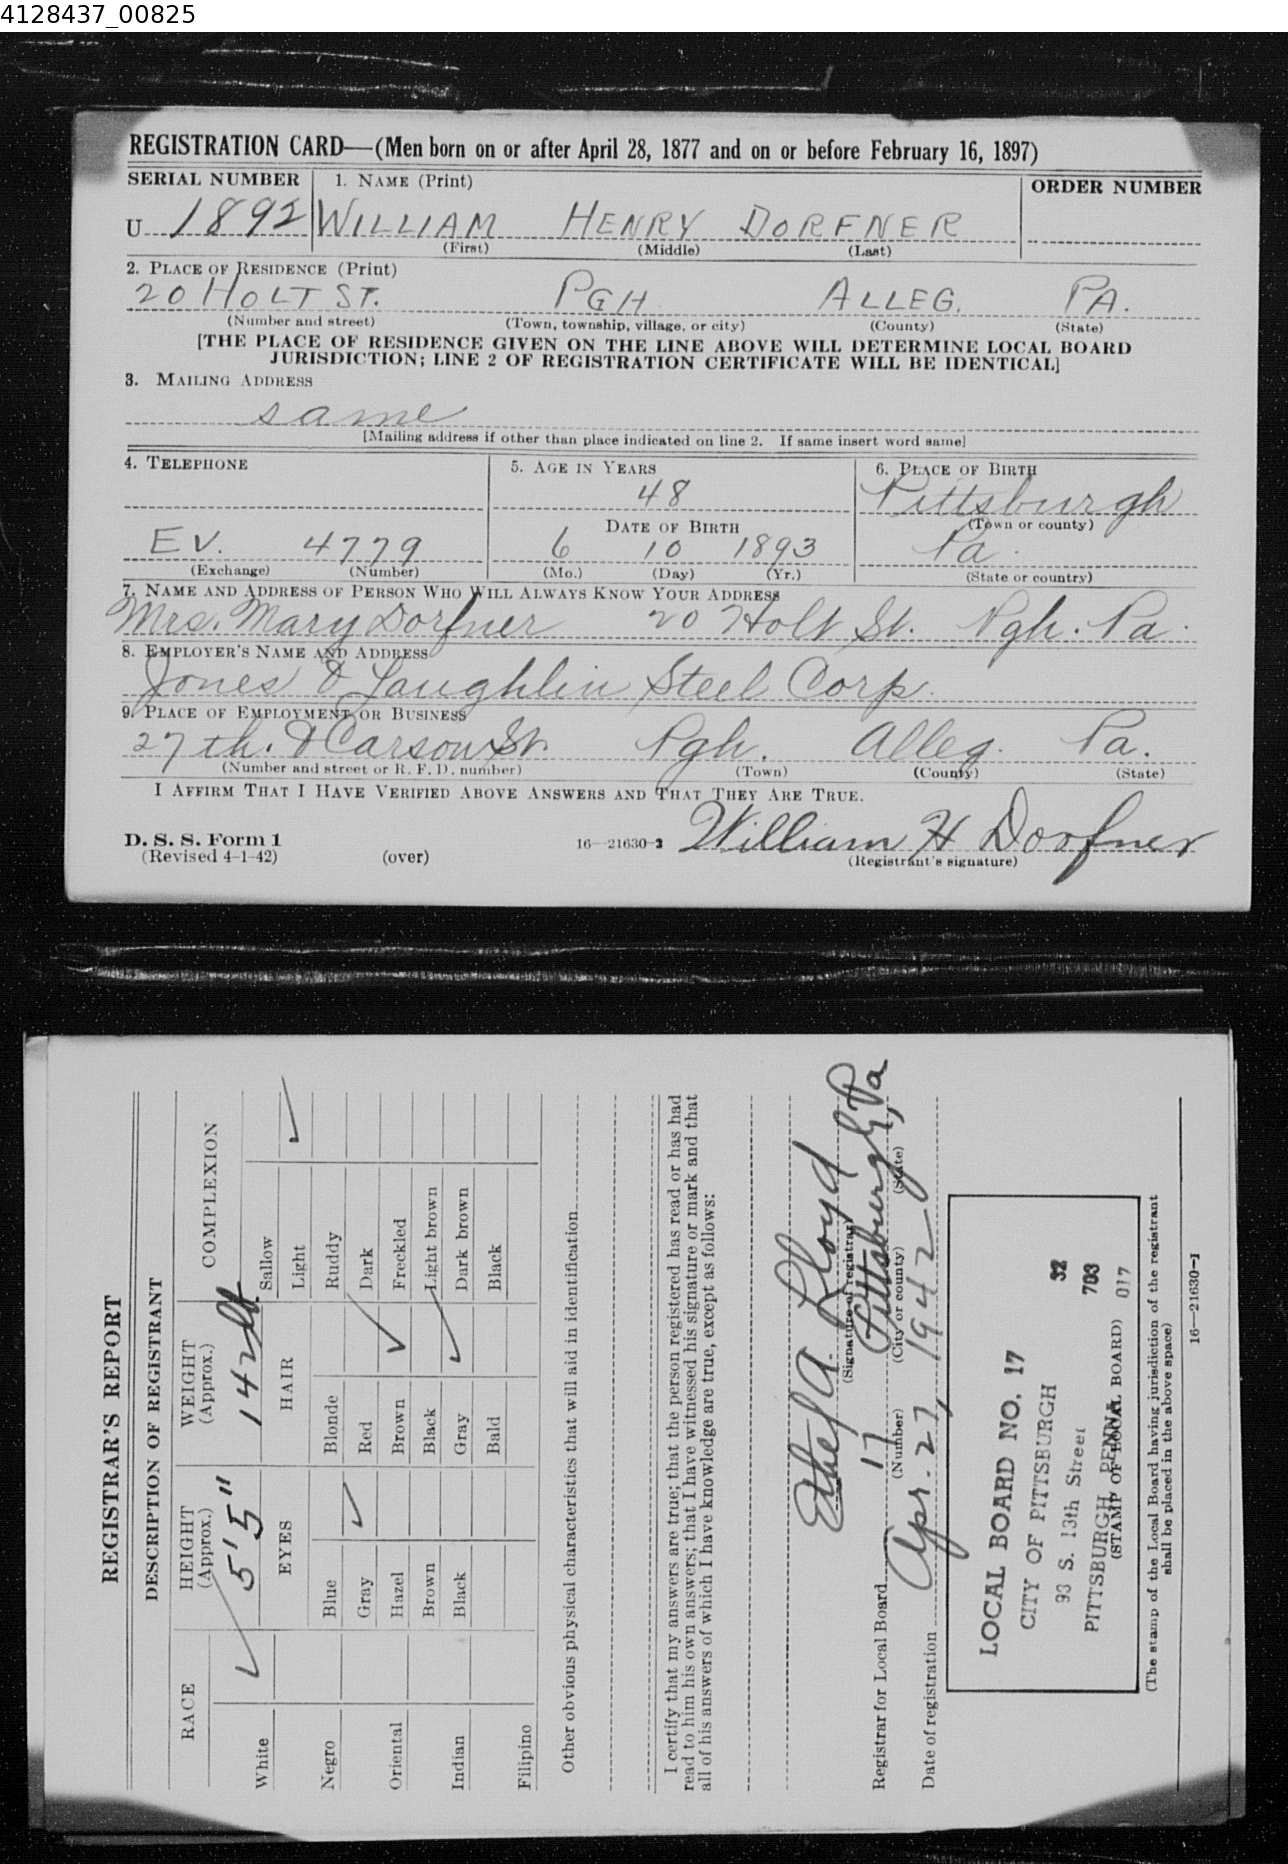 4128437_00825
REGISTRATION CARD—(Men born on or after April 28, 1877 and on or before February 16, 1897)
SERIAL NUMBER 1. NAME (Print) ORDER NUMBER
U 1892 WILLIAM HENRY DORFNER
(First) (Middle) (Last)
2. PLACE OF RESIDENCE (Print)
20 HOLT ST. PGH ALLEG. PA.
(Number and street) (Town, township, village, or city) (County) (State)
[THE PLACE OF RESIDENCE GIVEN ON THE LINE ABOVE WILL DETERMINE LOCAL BOARD
JURISDICTION; LINE 2 OF REGISTRATION CERTIFICATE WILL BE IDENTICAL]
3. MAILING ADDRESS
same
[Mailing address if other than place indicated on line 2. If same insert word same]
4. TELEPHONE 5. AGE IN YEARS 6. PLACE OF BIRTH
48 Pittsburgh
DATE OF BIRTH (Town or county)
EV. 4779 6 10 1893 Pa.
(Exchange) (Number) (Mo.) (Day) (Yr.) (State or country)
7. NAME AND ADDRESS OF PERSON WHO WILL ALWAYS KNOW YOUR ADDRESS
Mrs. Mary Dorfner 20 Holt St. Pgh. Pa.
8. EMPLOYER'S NAME AND ADDRESS
Jones & Laughlin Steel Corp.
9. PLACE OF EMPLOYMENT OR BUSINESS
27th. & Carson St. Pgh. Alleg. Pa.
(Number and street or R. F. D. number) (Town) (County) (State)
I AFFIRM THAT I HAVE VERIFIED ABOVE ANSWERS AND THAT THEY ARE TRUE.
D. S. S. Form 1
(Revised 4-1-42) (over) 16—21630-2 William H Dorfner
(Registrant's signature)
REGISTRAR'S REPORT
DESCRIPTION OF REGISTRANT
RACE HEIGHT (Approx.) WEIGHT (Approx.) COMPLEXION
5'5" 142 lb.
White EYES HAIR Sallow
Light
Negro Blue Blonde Ruddy
Gray Red Dark
Oriental Hazel Brown Freckled
Brown Black Light brown
Indian Black Gray Dark brown
Bald Black
Filipino
Other obvious physical characteristics that will aid in identification
I certify that my answers are true; that the person registered has read or has had
read to him his own answers; that I have witnessed his signature or mark and that
all of his answers of which I have knowledge are true, except as follows:
Ethel A. Lloyd
(Signature of registrar)
Registrar for Local Board 17 Pittsburgh, Pa
(Number) (City or county) (State)
Date of registration Apr. 27, 1942
LOCAL BOARD NO. 17
CITY OF PITTSBURGH 32
93 S. 13th Street 703
PITTSBURGH, PENNA. 017
(STAMP OF LOCAL BOARD)
(The stamp of the Local Board having jurisdiction of the registrant
shall be placed in the above space)
16—21630-1